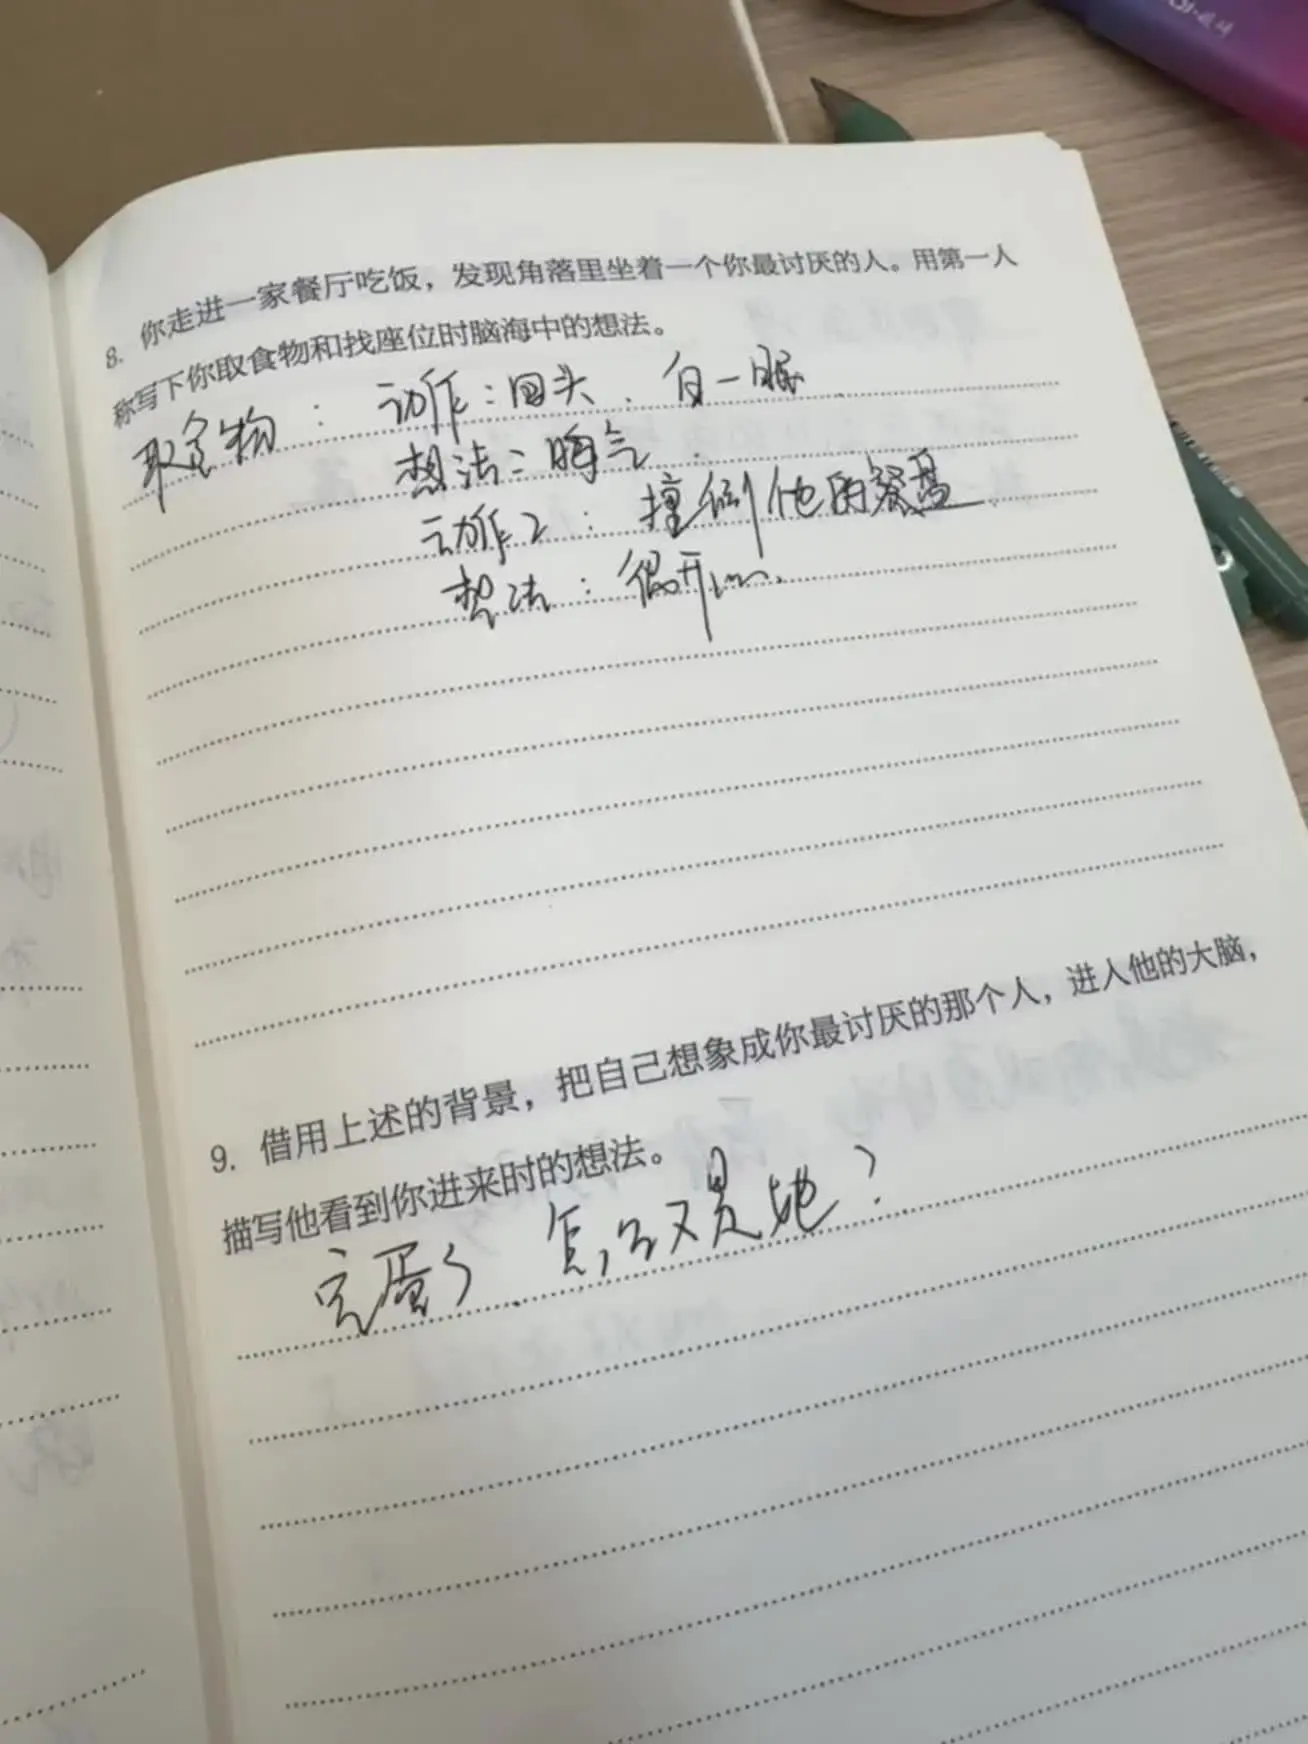 8. 你走进一家餐厅吃饭，发现角落里坐着一个你最讨厌的人。用第一人
称写下你取食物和找座位时脑海中的想法。
取食物：动作：回头、白一眼
想法：晦气
动作2：撞倒他的餐盘
想法：很开心
9. 借用上述的背景，把自己想象成你最讨厌的那个人，进入他的大脑，
描写他看到你进来时的想法。
完蛋了．怎么又是她？